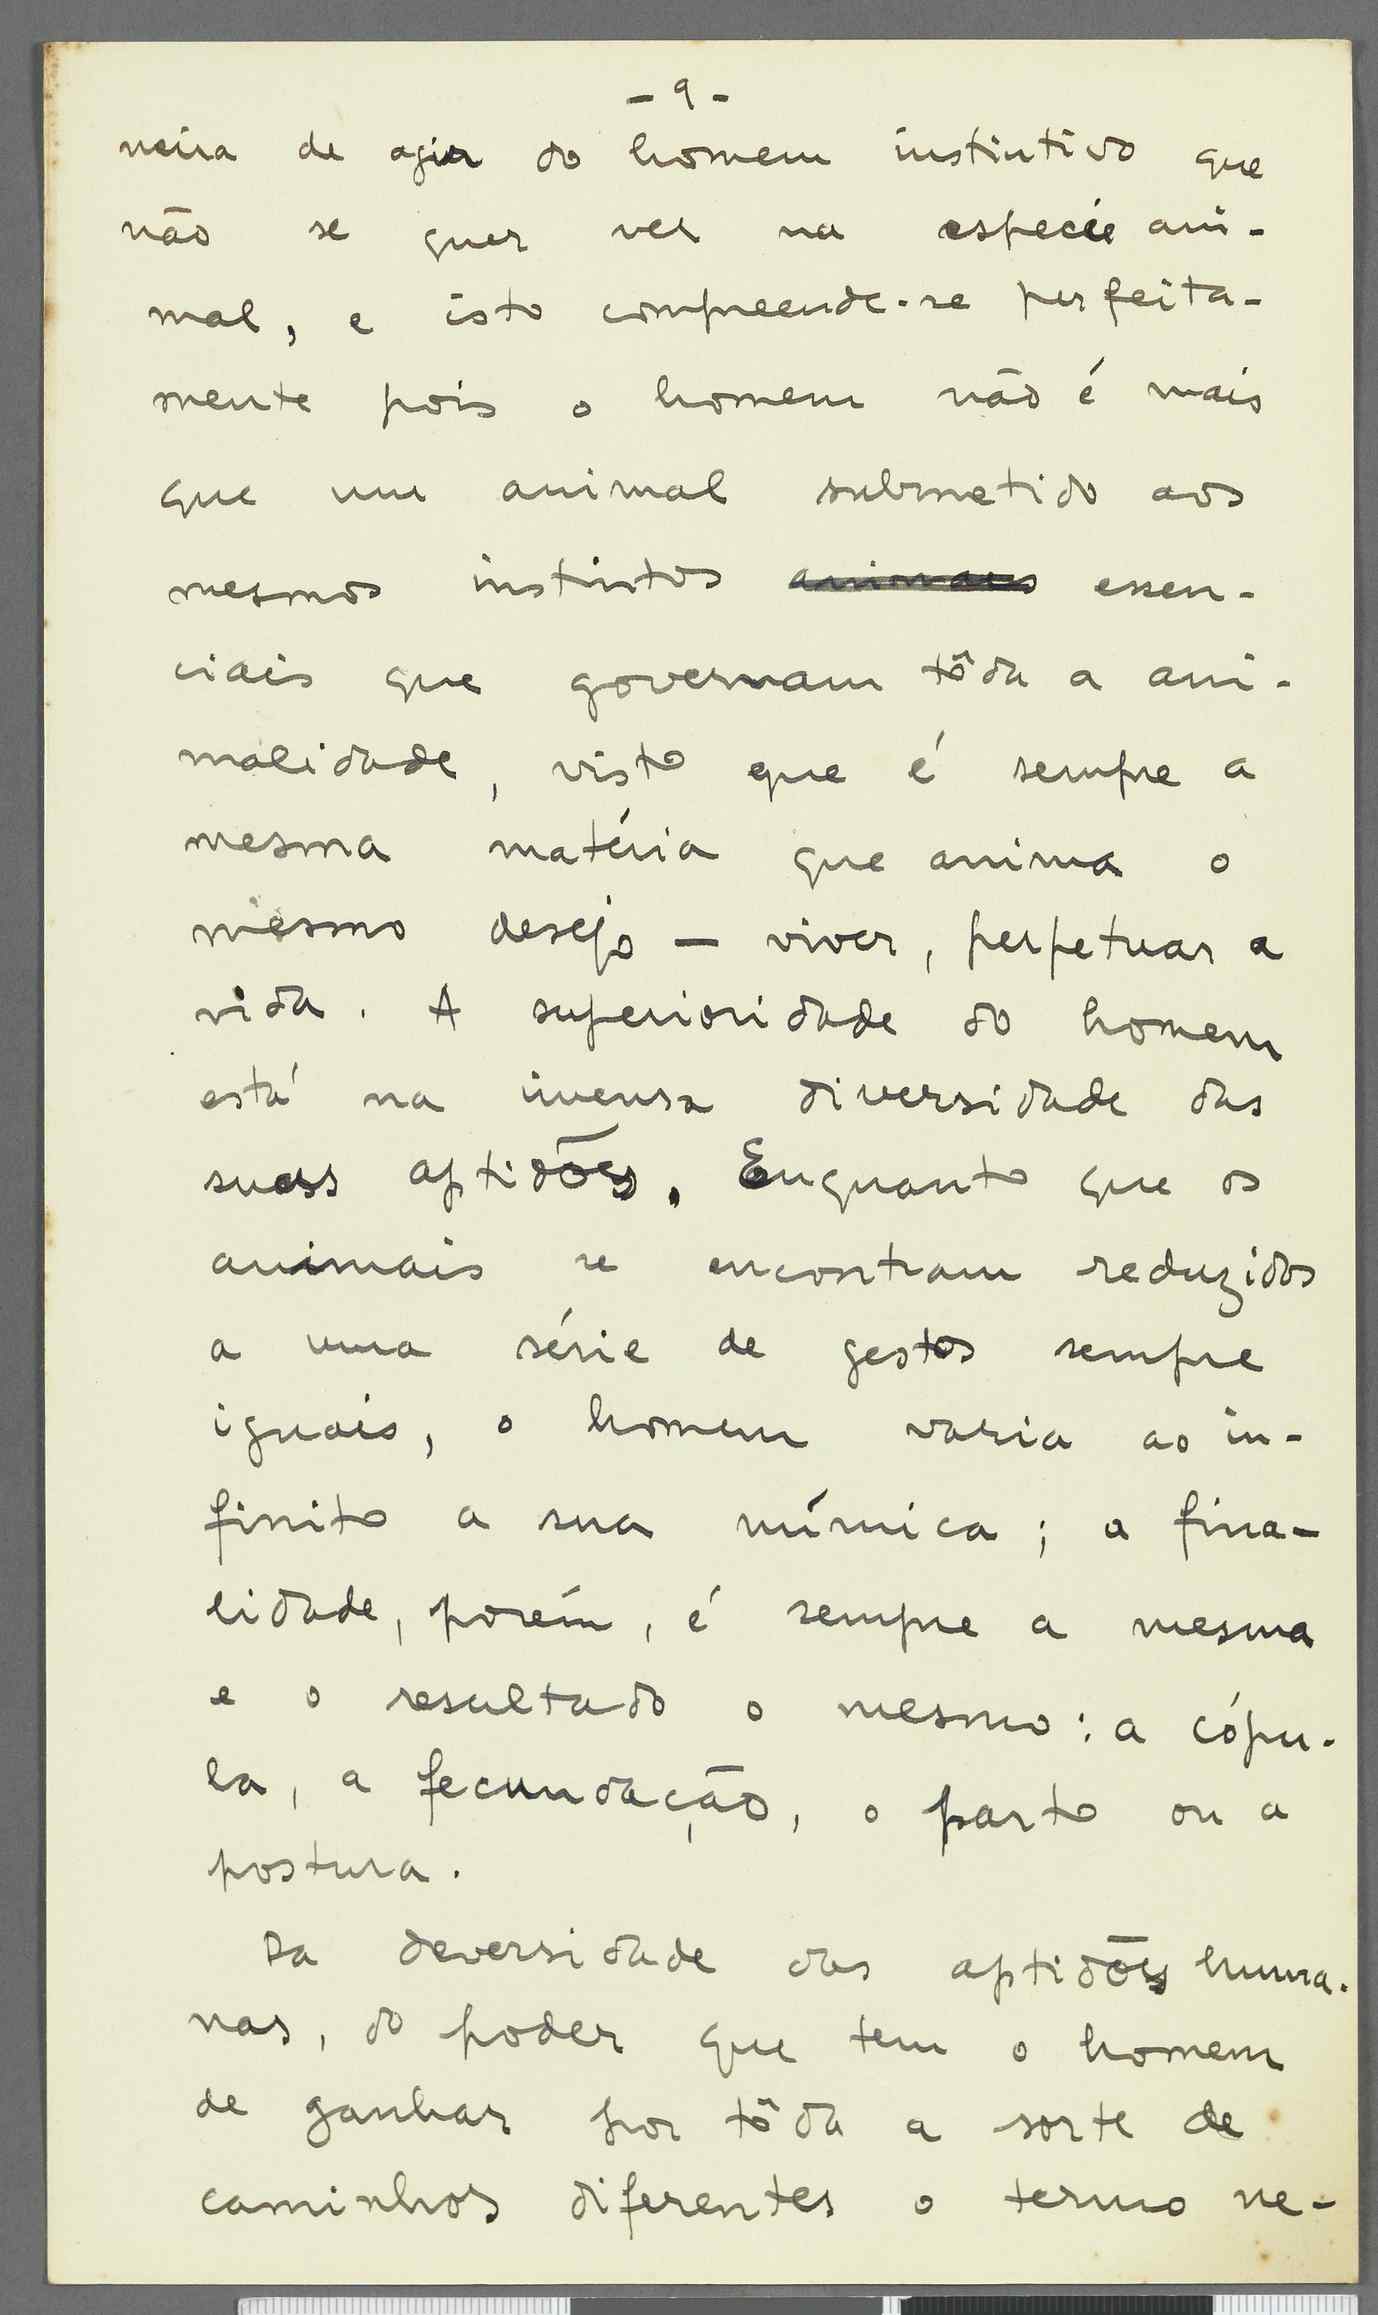 - 9 -
neira de agir do homem instintivo que
não se quer ver na espécie ani-
mal, e isto compreende-se perfeita-
mente pois o homem não é mais
que um animal submetido aos
mesmos instintos animaes essen-
ciais que governam tôda a ani-
malidade, visto que é sempre a
mesma matéria que anima o
mesmo desejo — viver, perpetuar a
vida. A superioridade do homem
está na imensa diversidade das
suas aptidões. Enquanto que os
animais se encontram reduzidos
a uma série de gestos sempre
iguais, o homem varia ao in-
finito a sua mímica; a fina-
lidade, porém, é sempre a mesma
e o resultado o mesmo: a cópu-
la, a fecundação, o parto ou a
postura.
Da deversidade das aptidões huma-
nas, do poder que tem o homem
de ganhar por tôda a sorte de
caminhos diferentes o termo ne-